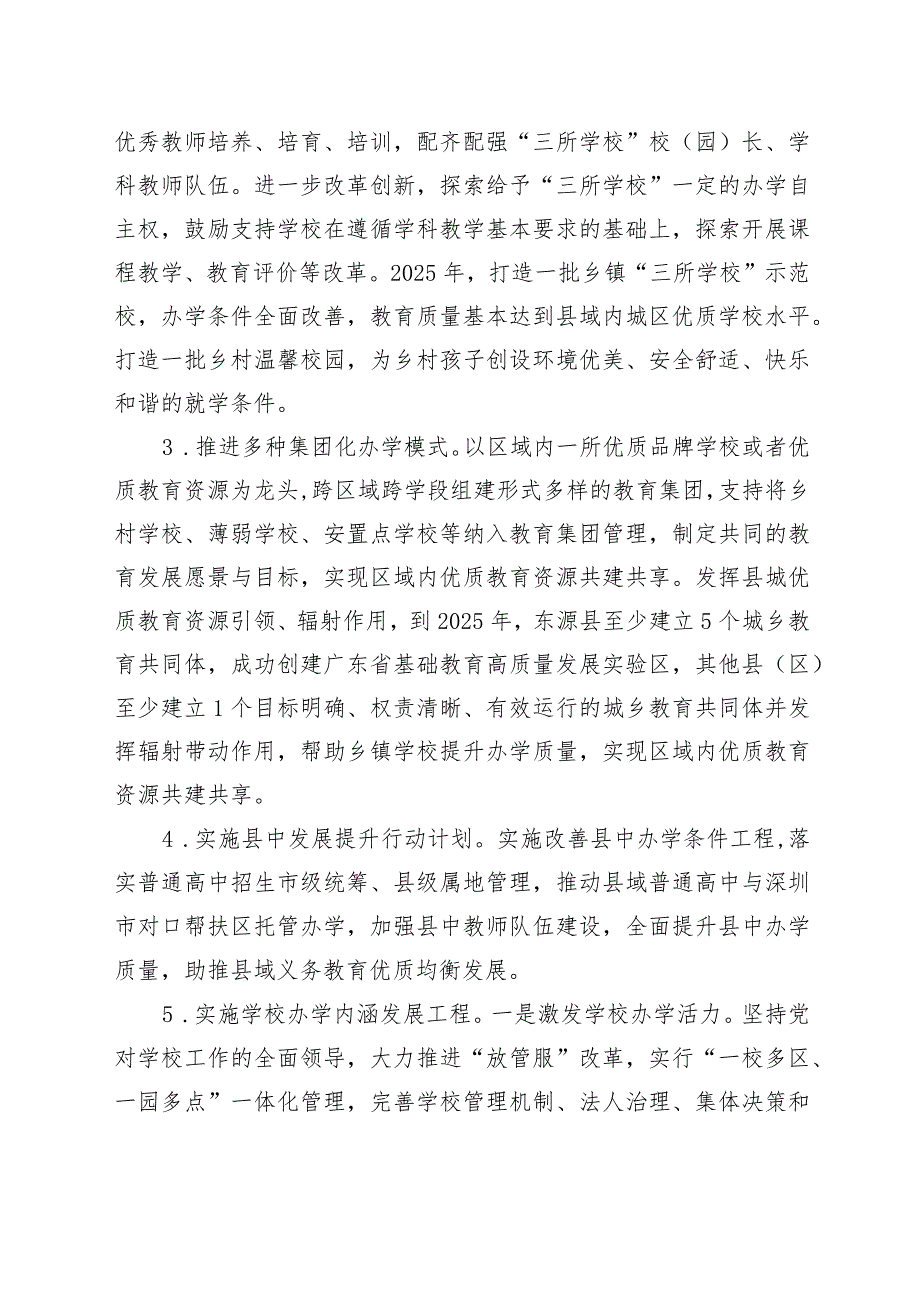 优秀教师培养、培育、培训，配齐配强“三所学校”校（园）长、学
科教师队伍。进一步改革创新，探索给予“三所学校”一定的办学自
主权，鼓励支持学校在遵循学科教学基本要求的基础上，探索开展课
程教学、教育评价等改革。2025 年，打造一批乡镇“三所学校”示范
校，办学条件全面改善，教育质量基本达到县域内城区优质学校水平。
打造一批乡村温馨校园，为乡村孩子创设环境优美、安全舒适、快乐
和谐的就学条件。
3 .推进多种集团化办学模式。以区域内一所优质品牌学校或者优
质教育资源为龙头,跨区域跨学段组建形式多样的教育集团,支持将乡
村学校、薄弱学校、安置点学校等纳入教育集团管理，制定共同的教
育发展愿景与目标，实现区域内优质教育资源共建共享。发挥县城优
质教育资源引领、辐射作用，到 2025 年，东源县至少建立 5 个城乡教
育共同体，成功创建广东省基础教育高质量发展实验区，其他县（区）
至少建立 1 个目标明确、权责清晰、有效运行的城乡教育共同体并发
挥辐射带动作用，帮助乡镇学校提升办学质量，实现区域内优质教育
资源共建共享。
4 .实施县中发展提升行动计划。实施改善县中办学条件工程,落
实普通高中招生市级统筹、县级属地管理，推动县域普通高中与深圳
市对口帮扶区托管办学，加强县中教师队伍建设，全面提升县中办学
质量，助推县域义务教育优质均衡发展。
5 .实施学校办学内涵发展工程。一是激发学校办学活力。坚持党
对学校工作的全面领导，大力推进“放管服”改革，实行“一校多区、
一园多点”一体化管理，完善学校管理机制、法人治理、集体决策和